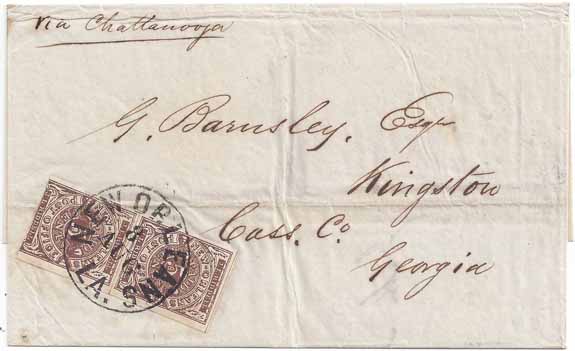 via Chattanooga
G. Barnsley, Esqr
Kingston
Cass. Co
Georgia
NEW ORLEANS
LA.